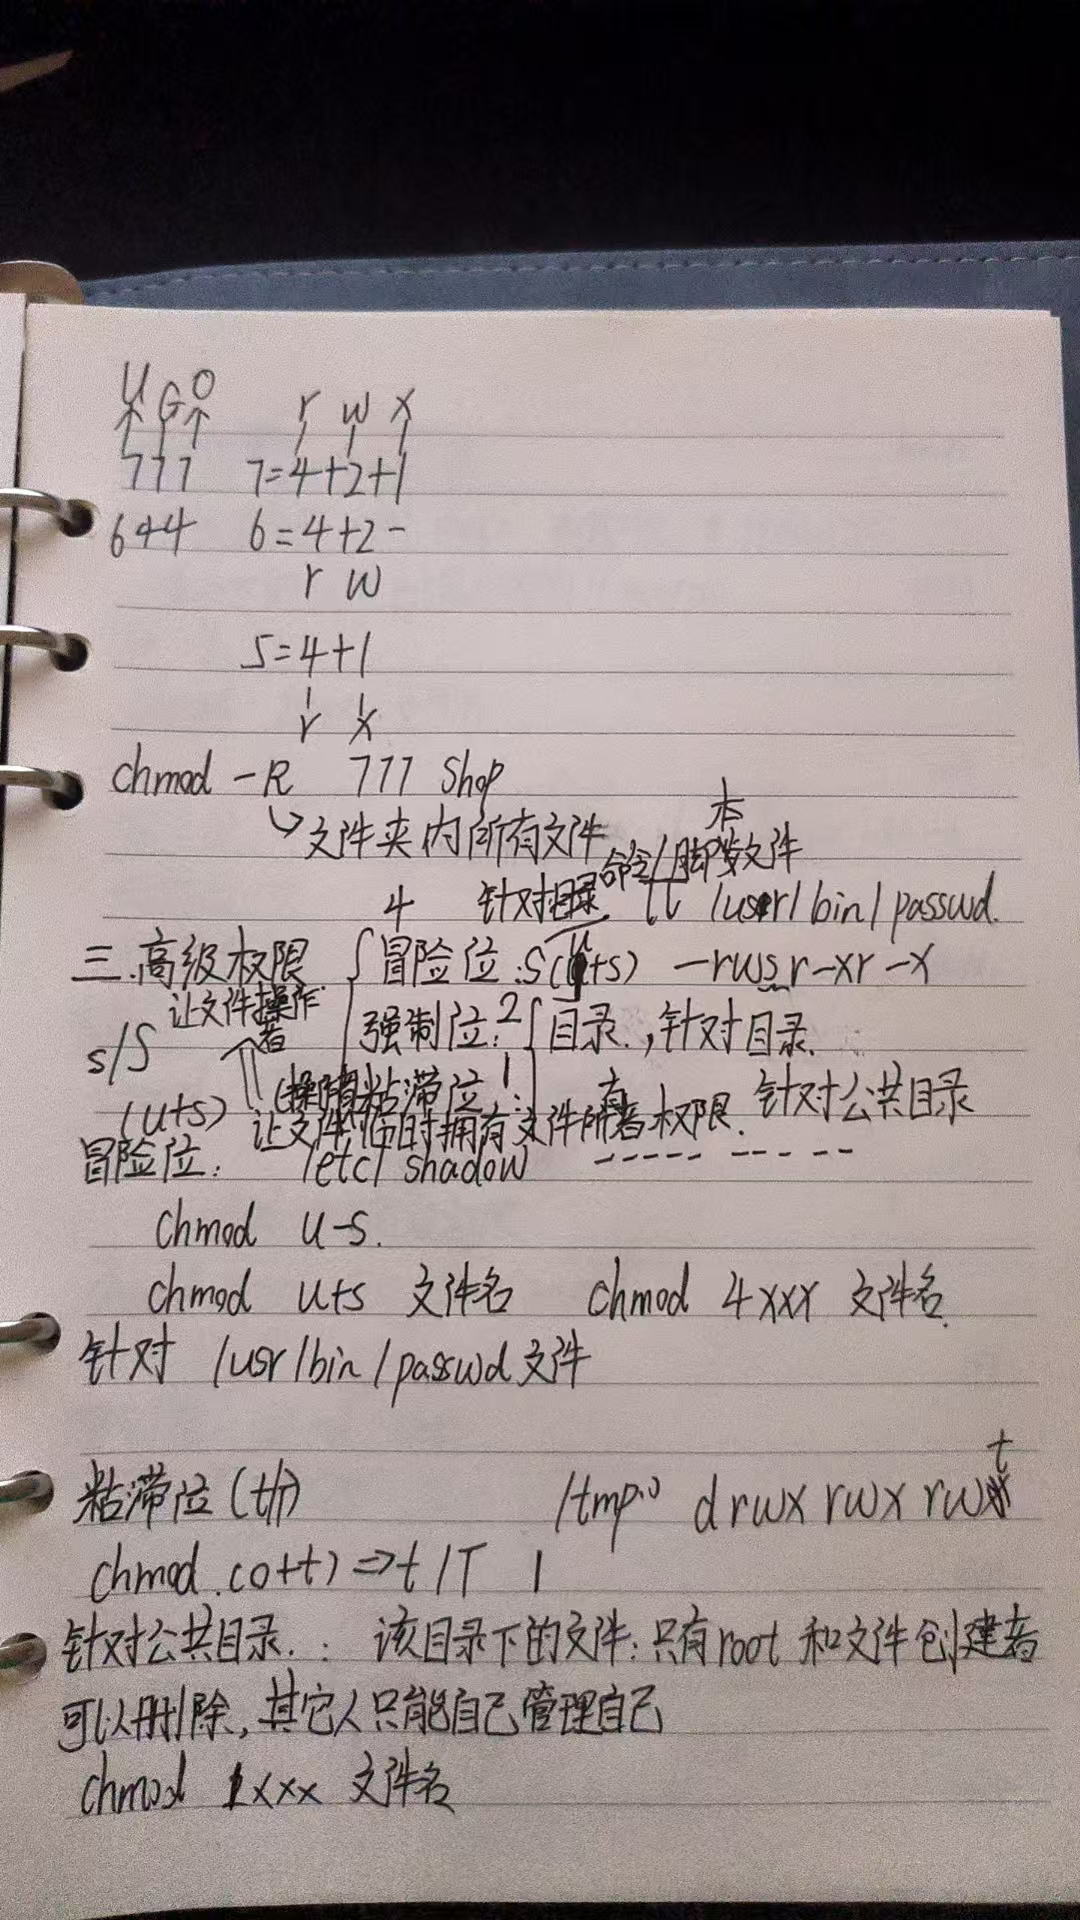 U G O
r w x
777 7=4+2+1
644 6=4+2-
r w
5=4+1
r x
chmod -R 777 Shop
文件夹内所有文件
本
命令/脚数文件
4 针对目录 /usr/bin/passwd.
三.高级权限 冒险位:S(u+s) -rwsr-xr-x
让文件操作者
强制位:2 目录.,针对目录.
s/S
粘滞位:1 针对公共目录
(u+s) 让文件临时拥有文件所有者权限.
冒险位: /etc/shadow ----- --- --
chmod u-s.
chmod u+s 文件名 chmod 4xxx 文件名.
针对 /usr/bin/passwd文件
粘滞位(t/T) /tmp drwxrwxrwt
chmod.(o+t)=>t/T 1
针对公共目录.: 该目录下的文件:只有root和文件创建者
可以删除,其它人只能自己管理自己
chmod 1xxx 文件名